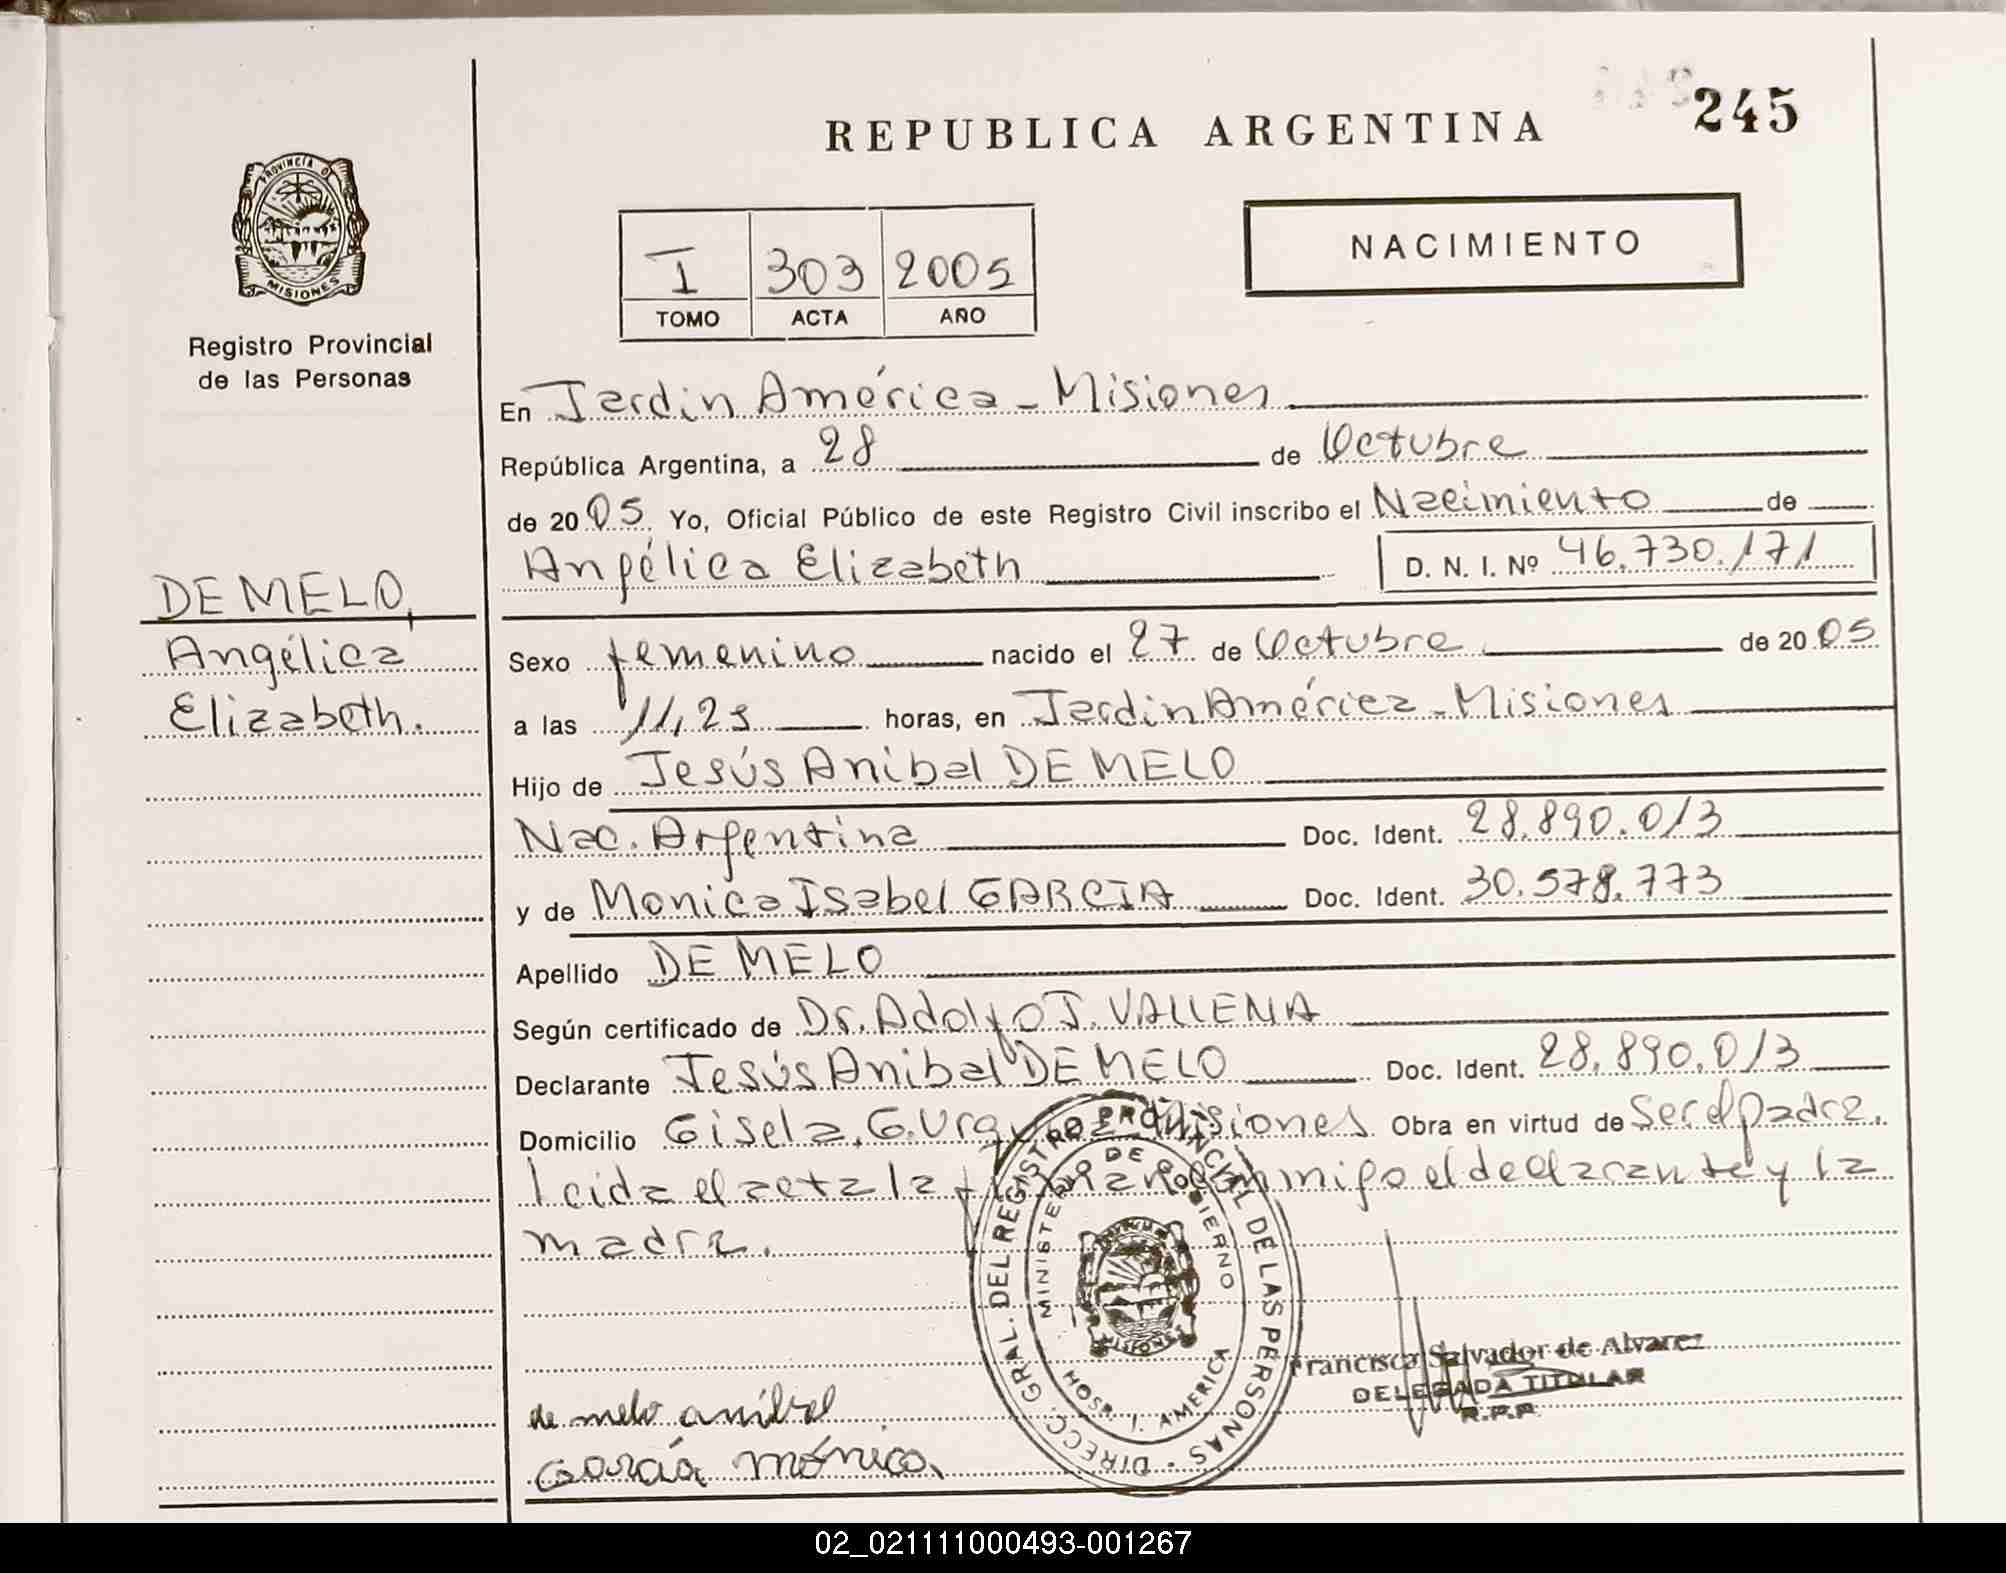 REPUBLICA ARGENTINA
245
PROVINCIA D
MISIONES
Registro Provincial
de las Personas
I 303 2005
TOMO ACTA AÑO
NACIMIENTO
En Jardin América - Misiones
República Argentina, a 28 de Octubre
de 2005. Yo, Oficial Público de este Registro Civil inscribo el Nacimiento de
Angélica Elizabeth D. N. I. Nº 46.730.171
DE MELO,
Angélica
Elizabeth.
Sexo femenino nacido el 27 de Octubre de 2005
a las 11,25 horas, en Jardin América - Misiones
Hijo de Jesús Anibal DE MELO
Nac. Argentina Doc. Ident. 28.890.013
y de Monica Isabel GARCIA Doc. Ident. 30.578.773
Apellido DE MELO
Según certificado de Dr. Adolfo J.
Declarante Jesús Anibal DE MELO Doc. Ident. 28.890.013
Domicilio Gisela. G. Misiones Obra en virtud de Ser el padre.
Leida el acta la conmigo el declarante y la
madre.
DIRECC. GRAL. DEL REGISTRO PROVINCIAL DE LAS PERSONAS
MINISTERIO DE GOBIERNO
MISIONES
HOSP. J. AMERICA
Francisca Salvador de Alvarez
DELEGADA TITULAR
R.P.P.
de melo aníbal
García mónica
02_021111000493-001267